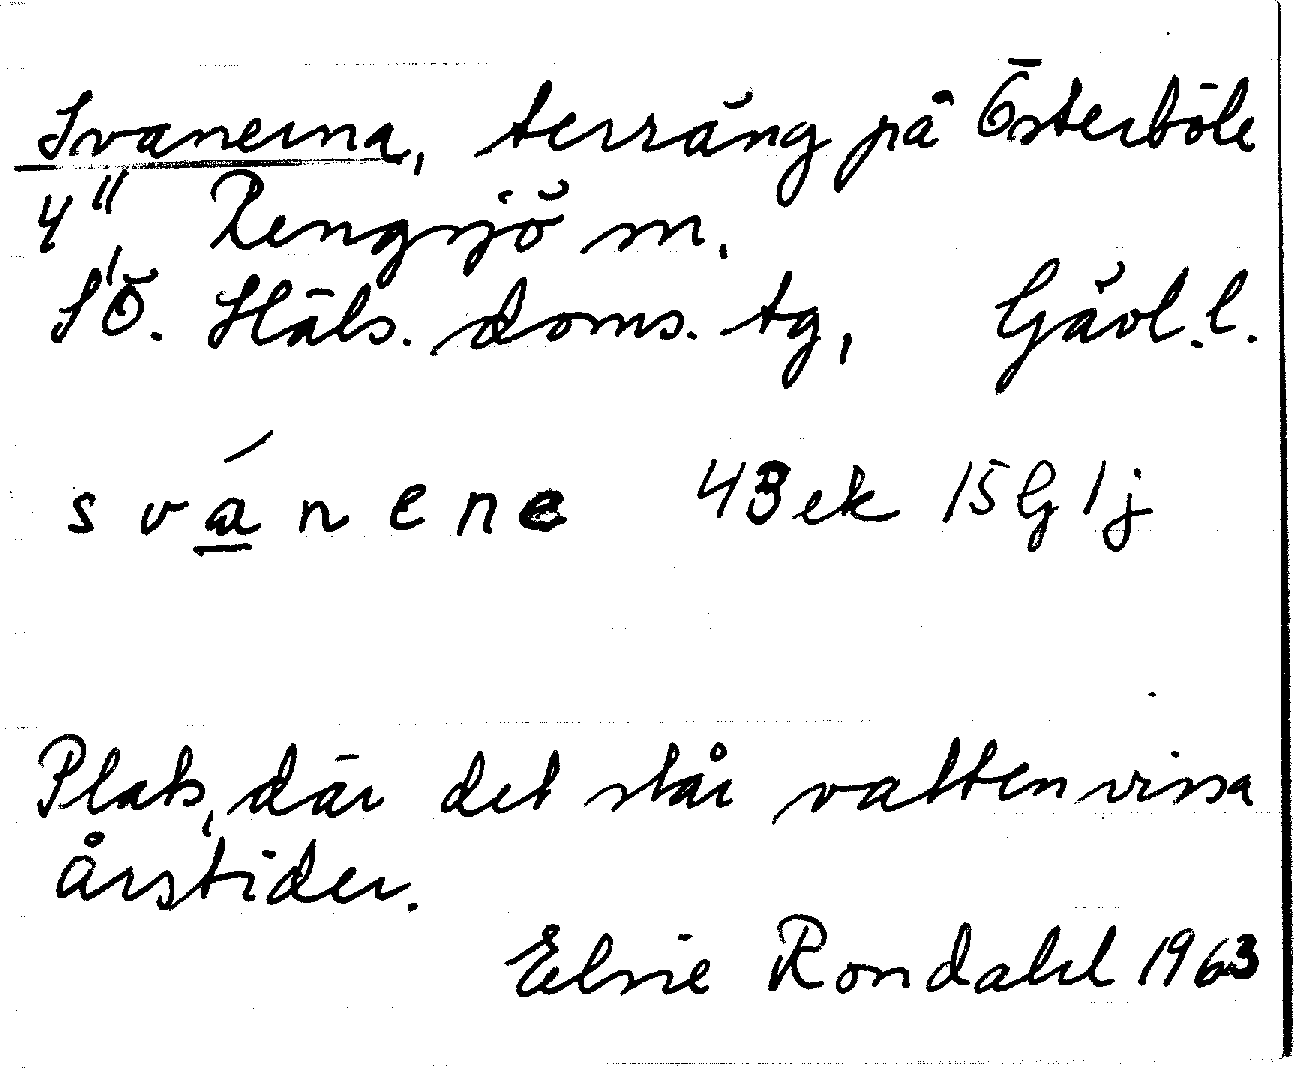 Svanerna, terräng på Österböle
4", Rengsjö sn.
SÖ. Häls. doms. tg, Gävl. l.
svánene 43 ek 15 G 1 j
Plats, där det står vatten vissa
årstider.
Elsie Rondahl 1963